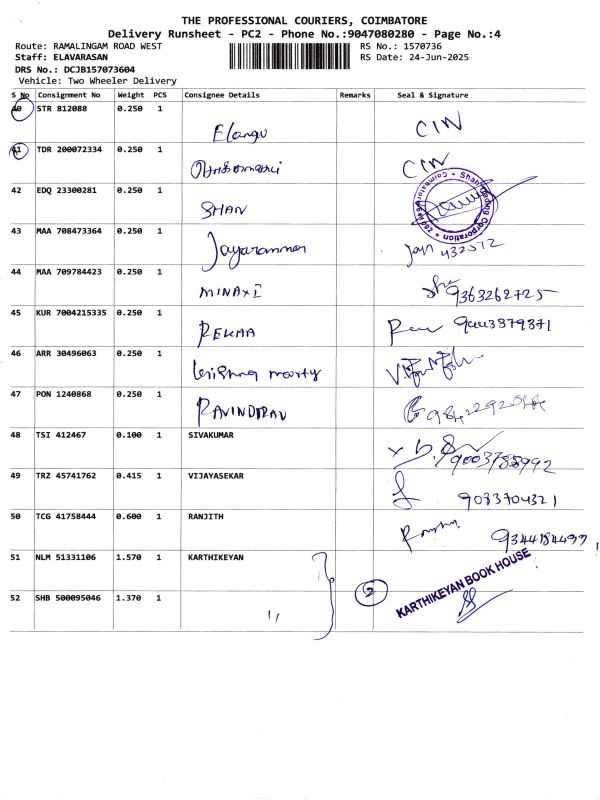 THE PROFESSIONAL COURIERS, COIMBATORE
Delivery Runsheet - PC2 - Phone No.:9047080280 - Page No.:4
Route: RAMALINGAM ROAD WEST RS No.: 1570736
Staff: ELAVARASAN RS Date: 24-Jun-2025
DRS No.: DCJB157073604
Vehicle: Two Wheeler Delivery
S No Consignment No Weight PCS Consignee Details Remarks Seal & Signature
40 STR 812088 0.250 1
Elango CIN
41 TDR 200072334 0.250 1
CIN
42 EDQ 23300281 0.250 1
SHAN
43 MAA 708473364 0.250 1
Jayaraman
44 MAA 709784423 0.250 1
MINAXI 9363262725
45 KUR 7004215335 0.250 1
REKHA
46 ARR 30496063 0.250 1
47 PON 1240868 0.250 1
RAVINDRAN
48 TSI 412467 0.100 1 SIVAKUMAR
49 TRZ 45741762 0.415 1 VIJAYASEKAR
50 TCG 41758444 0.600 1 RANJITH
51 NLM 51331106 1.570 1 KARTHIKEYAN
KARTHIKEYAN BOOK HOUSE
2
52 SHB 500095046 1.370 1
11